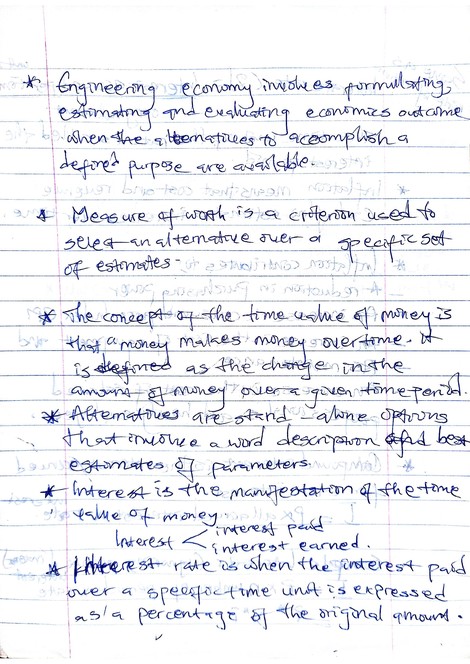 * Engineering economy involves formulating,
estimating and evaluating economics outcome
when the alternatives to accomplish a
defined purpose are available.
* Measure of worth is a criterion used to
select an alternative over a specific set
of estimates-
* The concept of the time value of money is
that money makes money over time. it
is defined as the change in the
amount of money over a given time period.
* Alternatives are stand-alone options
that involve a word description and best
estimates of parameters.
* Interest is the manifestation of the time
value of money.
Interest < interest paid
interest earned.
* Interest rate is when the interest paid
over a specific time unit is expressed
as a percentage of the original amount.